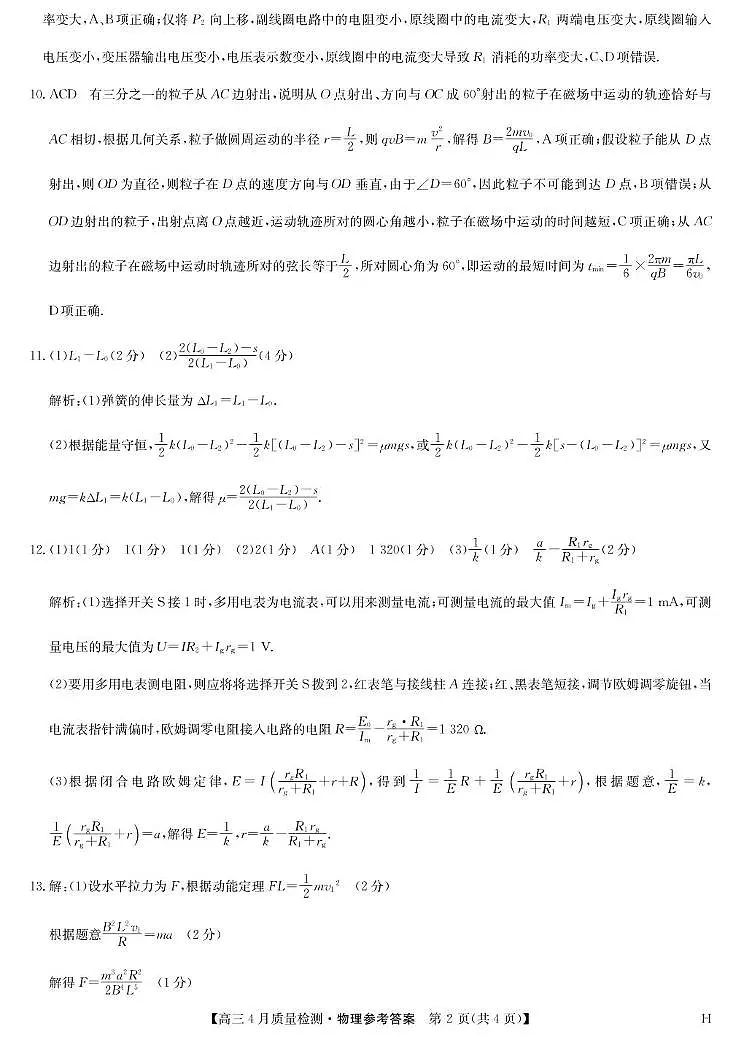 率变大,A、B项正确;仅将 P₂ 向上移,副线圈电路中的电阻变小,原线圈中的电流变大,R₁ 两端电压变大,原线圈输入
电压变小,变压器输出电压变小,电压表示数变小,原线圈中的电流变大导致 R₁ 消耗的功率变大,C、D项错误.
10. ACD 有三分之一的粒子从 AC 边射出,说明从 O 点射出、方向与 OC 成 60°射出的粒子在磁场中运动的轨迹恰好与
AC 相切,根据几何关系,粒子做圆周运动的半径 r=L/2,则 qvB=m v²/r,解得 B=2mv₀/qL,A 项正确;假设粒子能从 D 点
射出,则 OD 为直径,则粒子在 D 点的速度方向与 OD 垂直,由于∠D=60°,因此粒子不可能到达 D 点,B 项错误;从
OD 边射出的粒子,出射点离 O 点越近,运动轨迹所对的圆心角越小,粒子在磁场中运动的时间越短,C 项正确;从 AC
边射出的粒子在磁场中运动时轨迹所对的弦长等于 L/2,所对圆心角为 60°,即运动的最短时间为 tmin=1/6×2πm/qB=πL/6v₀,
D 项正确.
11. (1)L₁-L₀(2 分) (2)2(L₀-L₂)-s/2(L₁-L₀)(4 分)
解析:(1)弹簧的伸长量为 ΔL₁=L₁-L₀.
(2)根据能量守恒,1/2k(L₀-L₂)²-1/2k[(L₀-L₂)-s]²=μmgs,或1/2k(L₀-L₂)²-1/2k[s-(L₀-L₂)]²=μmgs,又
mg=kΔL₁=k(L₁-L₀),解得 μ=2(L₀-L₂)-s/2(L₁-L₀).
12. (1)1(1 分) 1(1 分) 1(1 分) (2)2(1 分) A(1 分) 1 320(1 分) (3)1/k(1 分) a/k-R₁rg/R₁+rg(2 分)
解析:(1)选择开关 S 接 1 时,多用电表为电流表,可以用来测量电流;可测量电流的最大值 Im=Ig+Igrg/R₁=1 mA,可测
量电压的最大值为 U=IR₂+Igrg=1 V.
(2)要用多用电表测电阻,则应将将选择开关 S 拨到 2,红表笔与接线柱 A 连接;红、黑表笔短接,调节欧姆调零旋钮,当
电流表指针满偏时,欧姆调零电阻接入电路的电阻 R=E₀/Im-rg·R₁/rg+R₁=1 320 Ω.
(3)根据闭合电路欧姆定律,E=I(rgR₁/rg+R₁+r+R),得到1/I=1/E R+1/E(rgR₁/rg+R₁+r),根据题意,1/E=k,
1/E(rgR₁/rg+R₁+r)=a,解得 E=1/k,r=a/k-R₁rg/R₁+rg.
13. 解:(1)设水平拉力为 F,根据动能定理 FL=1/2mv₁² (2 分)
根据题意B²L²v₁/R=ma (2 分)
解得 F=m³a²R²/2B⁴L⁵ (1 分)
【高三 4 月质量检测·物理参考答案 第 2 页(共 4 页)】 H